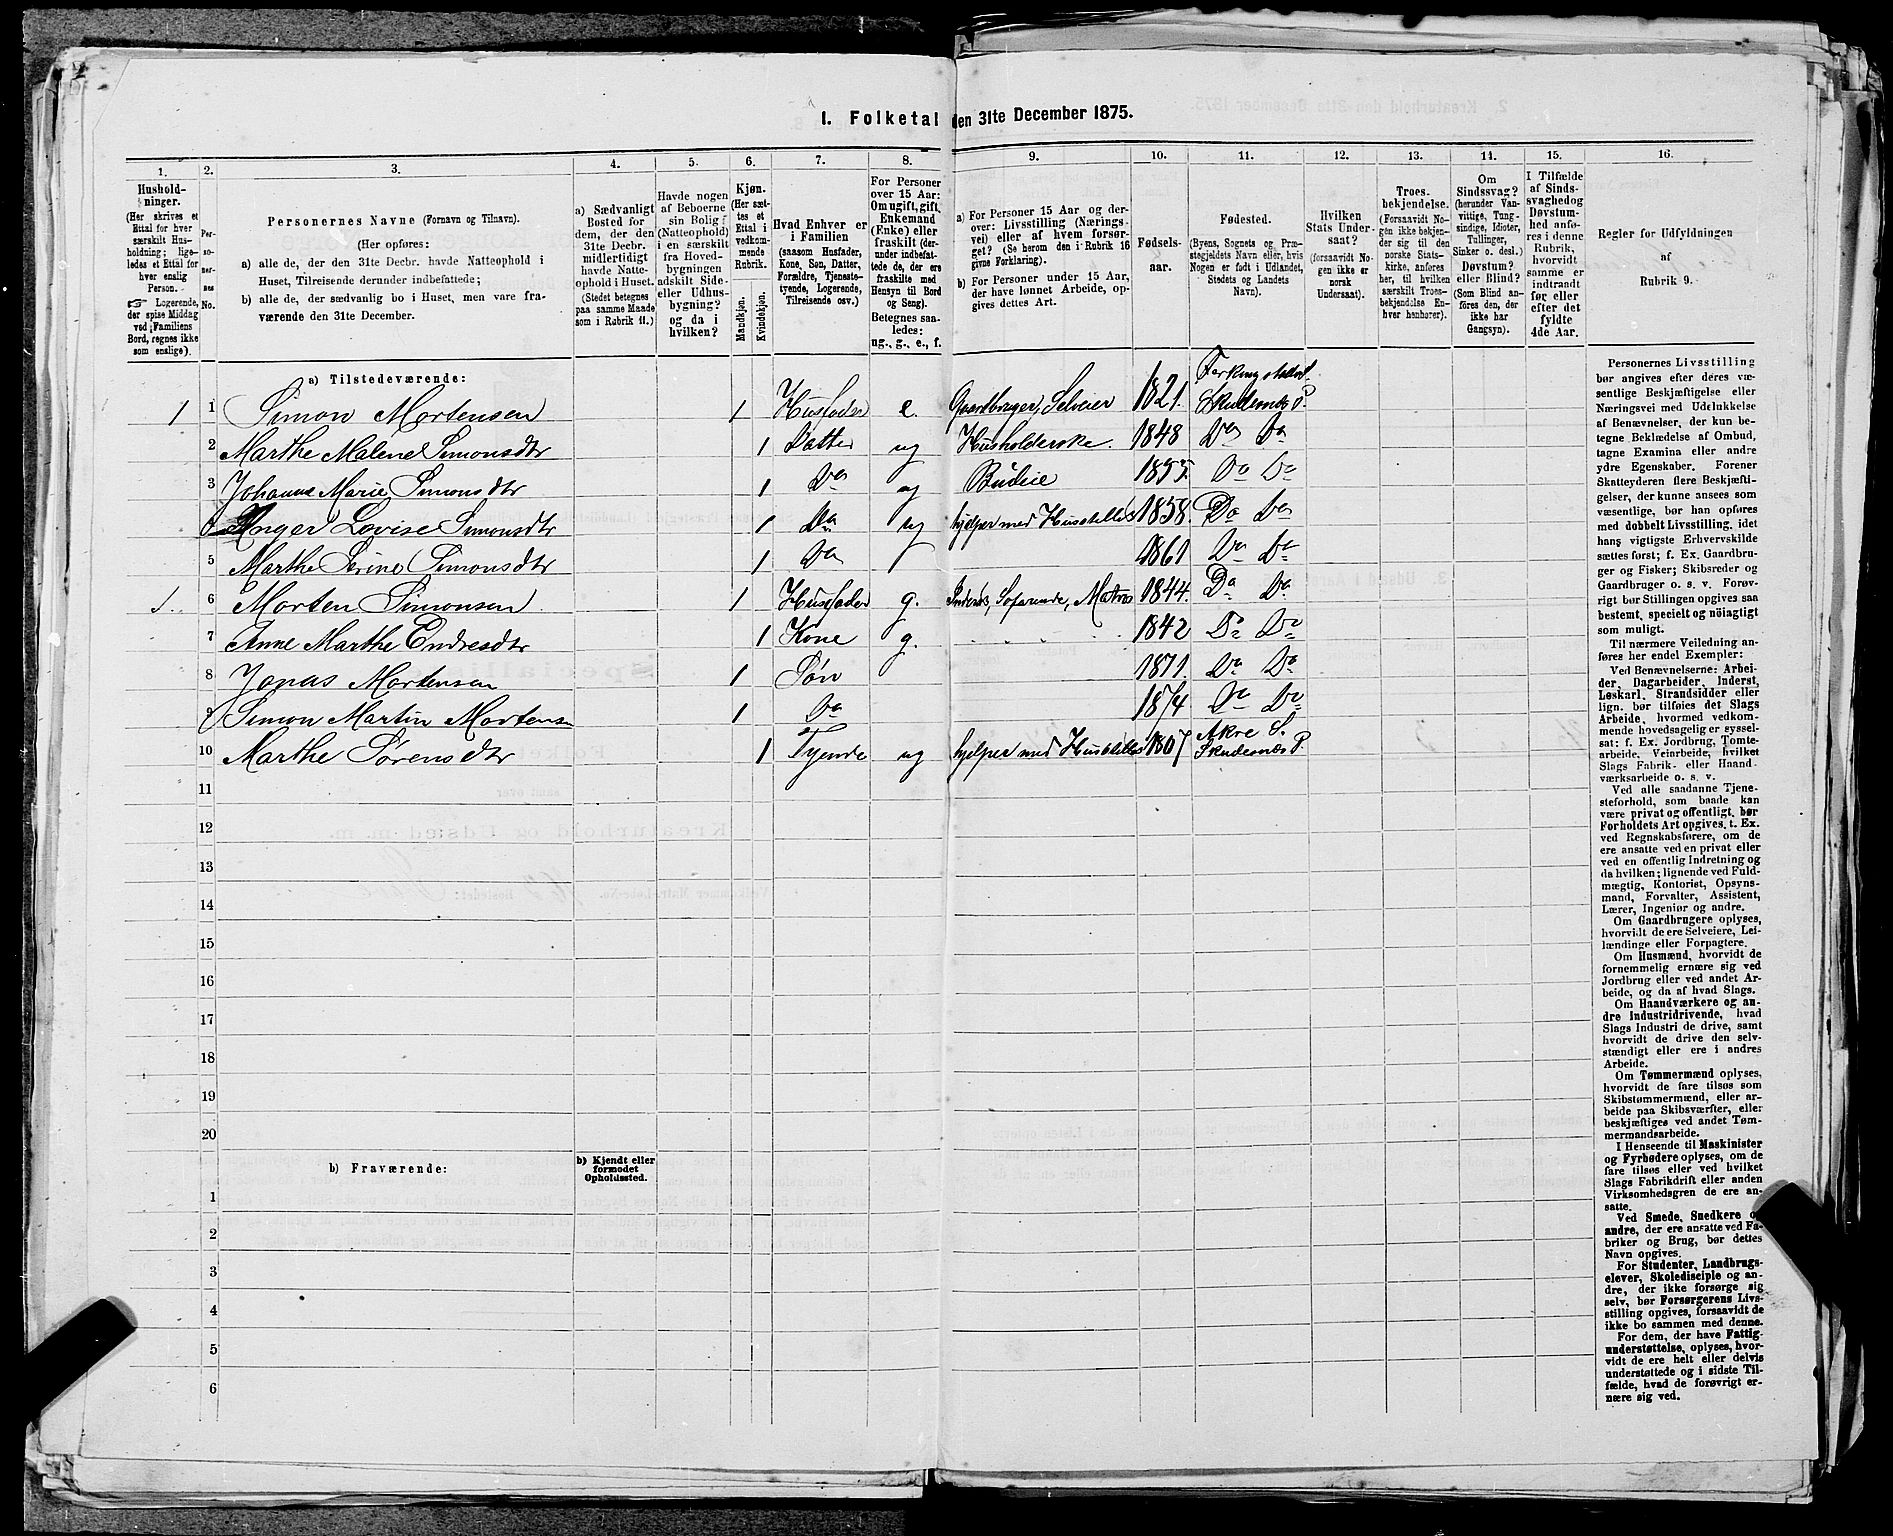 I. Folketal den 31te December 1875.
1. 2. 3. 4. 5. 6. 7. 8. 9. 10. 11. 12. 13. 14. 15. 16.
Hushold-
ninger.
(Her skrives et
Ettal for hver
særskilt Hus-
holdning; lige-
ledes et Ettal for
hver enslig
Person.
☞ Logerende,
der spise Middag
ved Familiens
Bord, regnes ikke
som enslige).
Per-
so-
ner-
nes
No.
Personernes Navne (Fornavn og Tilnavn).
(Her opføres:
a) alle de, der den 31te Decbr. havde Natteophold i
Huset, Tilreisende derunder indbefattede;
b) alle de, der sædvanlig bo i Huset, men vare fra-
værende den 31te December.
a) Sædvanligt
Bosted for
dem, der den
31te Decbr.
midlertidigt
havde Natte-
ophold i Huset.
(Stedet betegnes
paa samme Maade
som i Rubrik 11.)
Havde nogen
af Beboerne
sin Bolig
(Natteophold)
i en særskilt
fra Hoved-
bygningen
adskilt Side-
eller Udhus-
bygning?
og da i
hvilken?
Kjøn.
(Her sæt-
tes et
Ettal i
vedkom-
mende
Rubrik.
Mandkjøn.
Kvindekjøn.
Hvad Enhver er
i Familien
(saasom Husfader,
Kone, Søn, Datter,
Forældre, Tjeneste-
tyende, Logerende,
Tilreisende osv.)
For Personer
over 15 Aar:
Om ugift, gift,
Enkemand
(Enke) eller
fraskilt (der-
under indbefat-
tede de, der ere
fraskilte med
Hensyn til Bord
og Seng).
Betegnes saa-
ledes:
ug., g., e., f.
a) For Personer 15 Aar og der-
over: Livsstilling (Nærings-
vei) eller af hvem forsør-
get? (Se herom den i Rubrik 16
givne Forklaring).
b) For Personer under 15 Aar,
der have lønnet Arbeide, op-
gives dettes Art.
Fødsels-
aar.
Fødested.
(Byens, Sognets og Præ-
stegjeldets Navn eller, hvis
Nogen er født i Udlandet,
Stedets og Landets
Navn).
Hvilken
Stats Under-
saat?
(forsaavidt No-
gen ikke er
norsk
Undersaat).
Troes-
bekjendelse.
(Forsaavidt No-
gen ikke bekjen-
der sig til den
norske Stats-
kirke, anføres
her, til hvilken
særskilt Troes-
bekjendelse En-
hver henhører).
Om
Sindssvag?
(herunder Van-
vittige, Tung-
sindige, Idioter,
Tullinger,
Sinker o. desl.)
Døvstum?
eller Blind?
(Som Blind an-
føres den, der
ikke har
Gangsyn).
I Tilfælde
af Sinds-
svaghed og
Døvstum-
hed anfø-
res i denne
Rubrik,
hvorvidt
samme er
indtraadt
før eller
efter det
fyldte
4de Aar.
Regler for Udfyldningen
af
Rubrik 9.
a) Tilstedeværende:
1 1 Simon Mortensen 1 Husfader e. Gaardbruger, Selveier 1821. Ferkingstad S. Skudesnæs P.
2 Marthe Malene Simonsdtr 1 Datter ug Husholderske. 1848 Do Do
3 Johanne Marie Simonsdtr 1 Do ug Budeie 1855. Do Do
Inger Lovise Simonsdtr 1 Do ug hjelper med Husstellet 1858. Do Do
5 Marthe Serine Simonsdtr 1 Do 1861 Do Do
1. 6 Morten Simonsen 1 Husfader g. Inderst, Søfarende, Matros 1844. Do Do
7 Anne Marthe Endresdtr 1 Kone g. 1842 Do Do
8 Jonas Mortensen 1 Søn 1871. Do Do
9 Simon Martin Mortensen 1 Do 1874 Do Do
10 Marthe Sørensdtr 1 Tyende ug hjelper med Husstellet 1807 Akre S. Skudesnæs P.
11
12
13
14
15
16
17
18
19
20
b) Fraværende:
b) Kjendt eller
formodet
Opholdssted.
1
2
3
4
5
6
Personernes Livsstilling
bør angives efter deres væ-
sentlige Beskjæftigelse eller
Næringsvei med Udelukkelse
af Benævnelser, der kun be-
tegne Beklædelse af Ombud,
tagne Examina eller andre
ydre Egenskaber. Forener
Skatteyderen flere Beskjæfti-
gelser, der kunne ansees som
væsentlige, bør han opføres
med dobbelt Livsstilling, idet
hans vigtigste Erhvervskilde
sættes først; f. Ex. Gaardbru-
ger og Fisker; Skibsreder og
Gaardbruger o. s. v. Forøv-
rigt bør Stillingen opgives saa
bestemt, specielt og nöiagtigt
som muligt.
Til nærmere Veiledning an-
føres her endel Exempler:
Ved Benævnelserne: Arbei-
der, Dagarbeider, Inderst,
Løskarl, Strandsidder eller
lign. bør tilføies det Slags
Arbeide, hvormed vedkom-
mende hovedsagelig er syssel-
sat: f. Ex. Jordbrug, Tomte-
arbeide, Veiarbeide, hvilket
Slags Fabrik- eller Haand-
værksarbeide o. s. v.
Ved alle saadanne Tjene-
steforhold, som baade kan
være privat og offentligt, bør
Forholdets Art opgives, t. Ex.
ved Regnskabsførere, om de
ere ansatte ved en privat eller
ved en offentlig Indretning og
da hvilken; lignende ved Fuld-
mægtig, Kontorist, Opsyns-
mand, Forvalter, Assistent,
Lærer, Ingeniør og andre.
Om Gaardbrugere oplyses,
hvorvidt de ere Selveiere, Lei-
lændinge eller Forpagtere.
Om Husmænd, hvorvidt de
fornemmelig ernære sig ved
Jordbrug eller ved andet Ar-
beide, og da af hvad Slags.
Om Haandværkere og an-
dre Industridrivende, hvad
Slags Industri de drive, samt
hvorvidt de drive den selv-
stændigt eller ere i andres
Arbeide.
Om Tømmermænd oplyses,
hvorvidt de fare tilsøs som
Skibstømmermænd, eller ar-
beide paa Skibsværfter, eller
beskjæftiges ved andet Tøm-
mermandsarbeide.
I Henseende til Maskinister
og Fyrbødere oplyses, om de
fare tilsøs eller ved hvilket
Slags Fabrikdrift eller anden
Virksomhedsgren de ere an-
satte.
Ved Smede, Snedkere og
andre, der ere ansatte ved Fa-
briker og Brug, bør dettes
Navn opgives.
For Studenter, Landbrugs-
elever, Skoledisciple og an-
dre, der ikke forsørge sig
selv, bør Forsørgerens Livs-
stilling opgives, forsaavidt de
ikke bo sammen med denne.
For dem, der have Fattig-
understøttelse, oplyses, hvor-
vidt de ere helt eller delvis
understøttede og i sidste Til-
fælde, hvad de forøvrigt er-
nære sig ved.